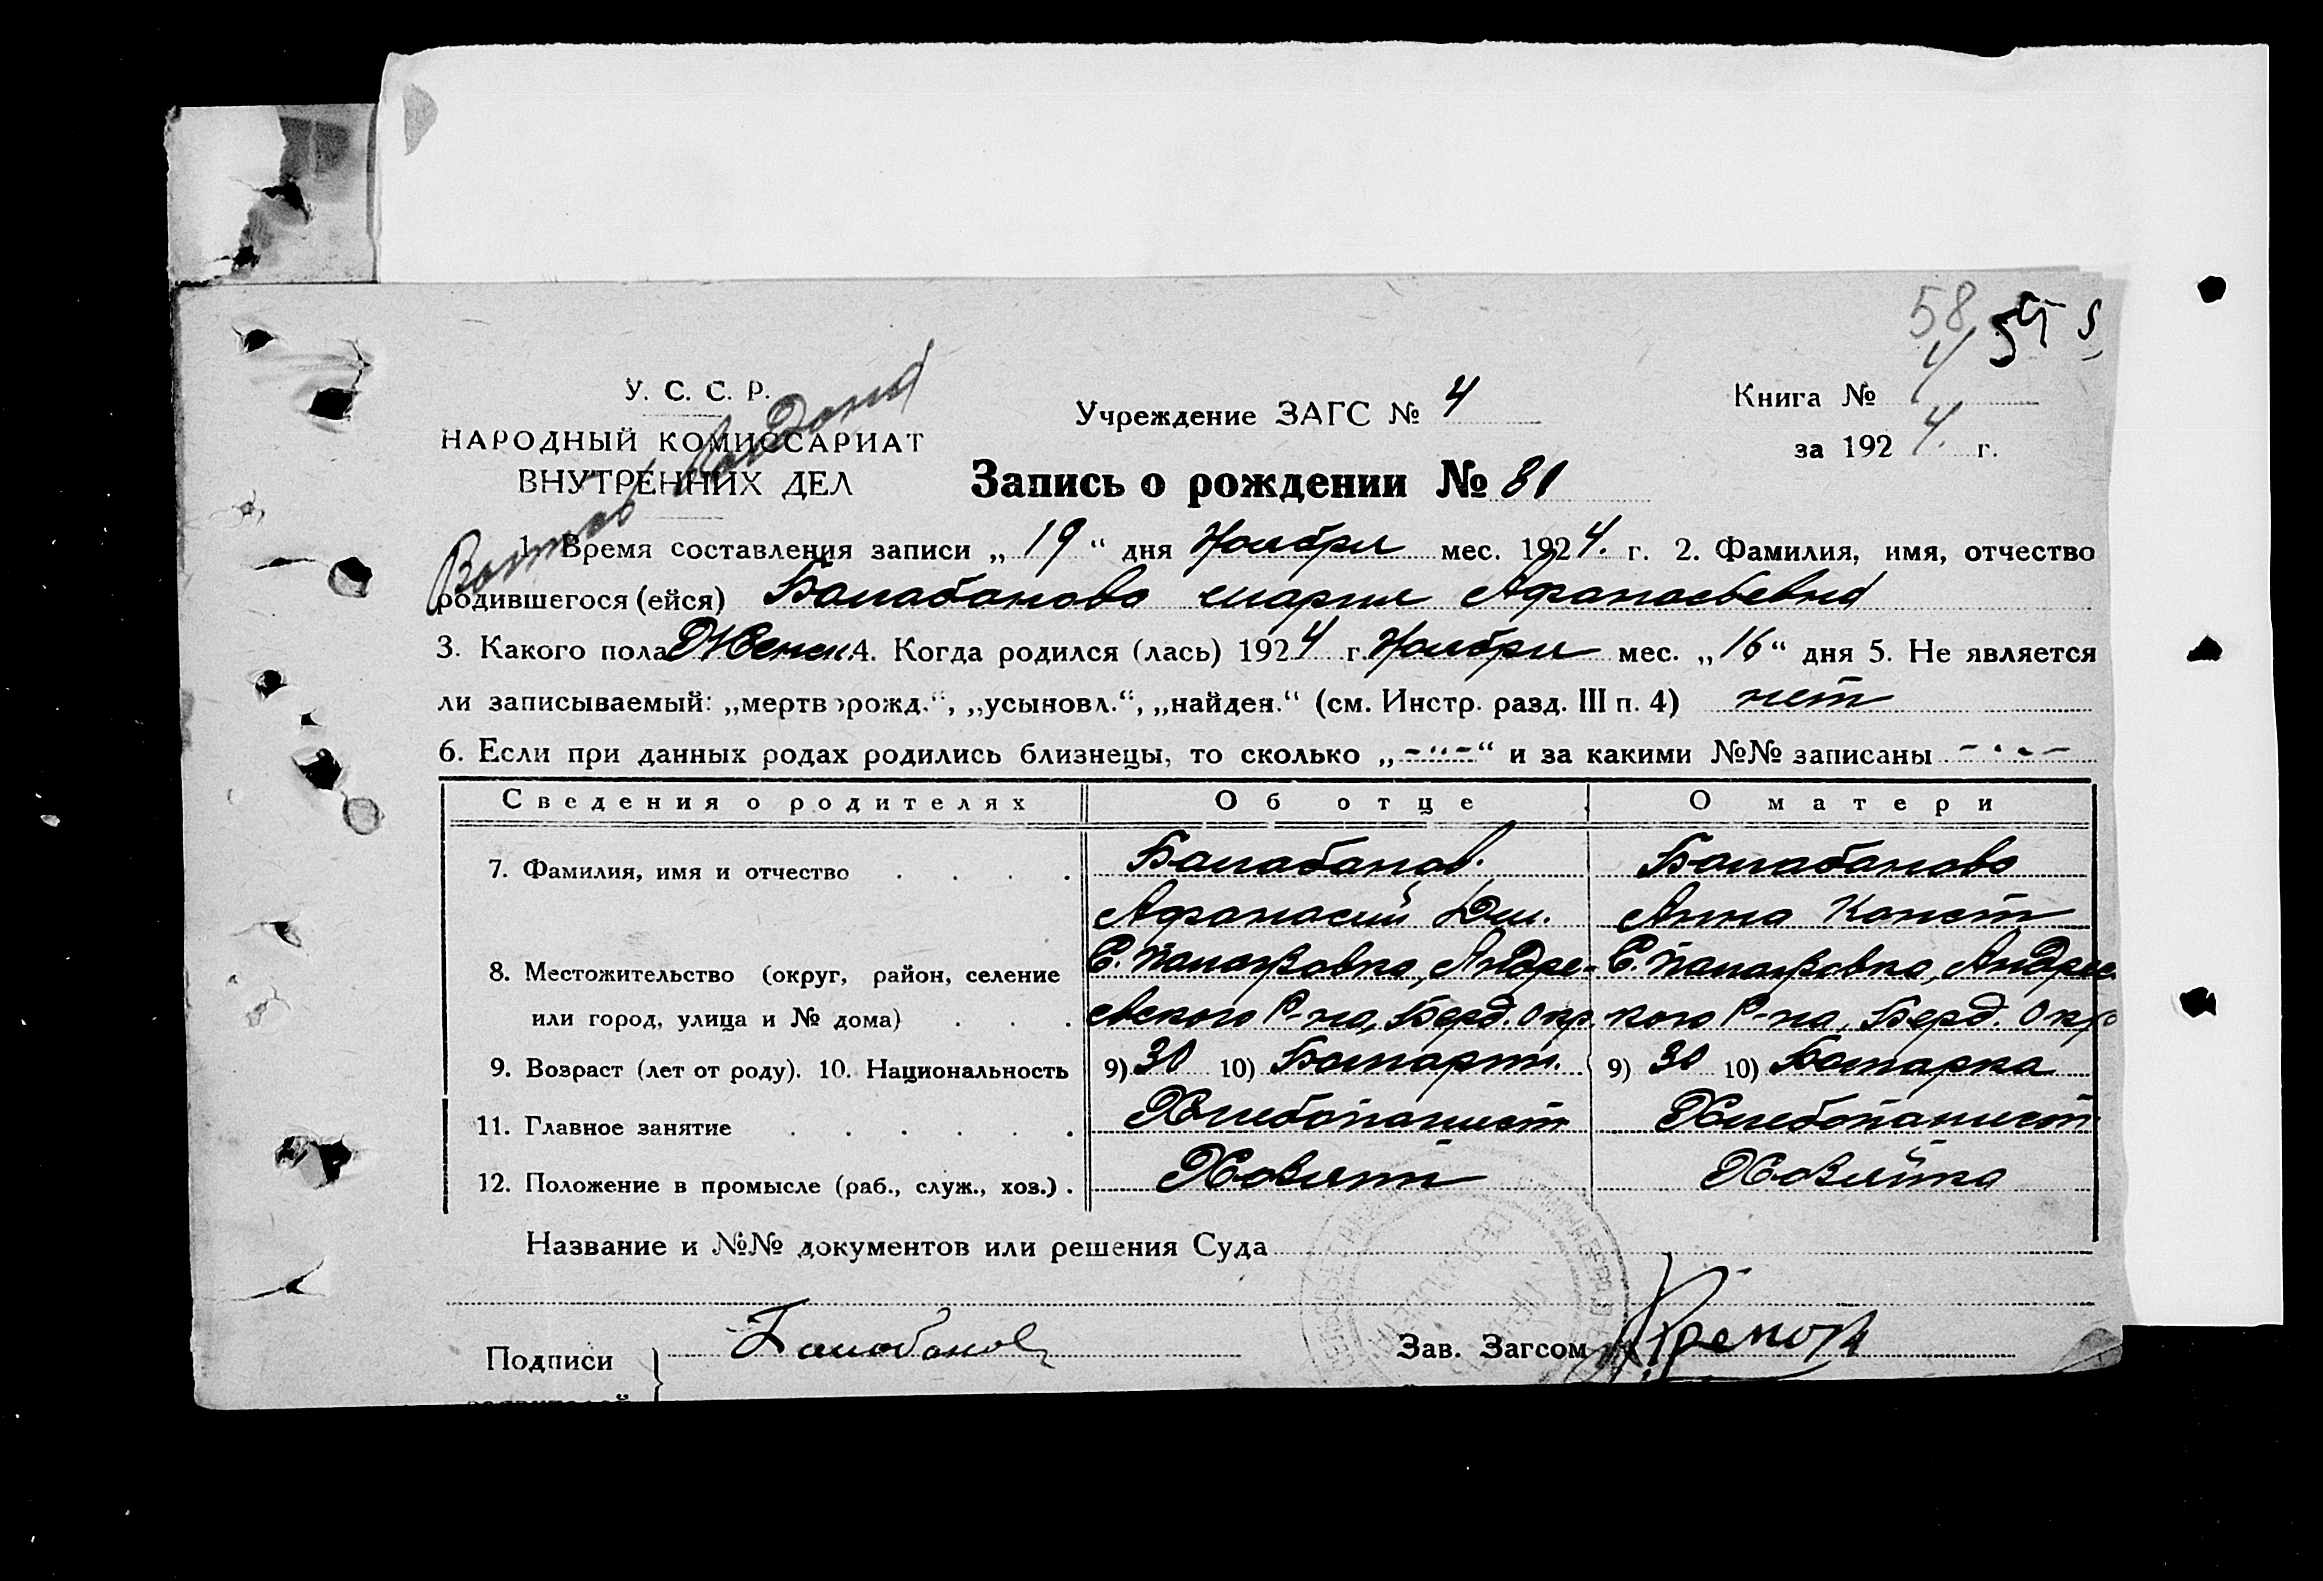 58 59
У. С. С. Р.
НАРОДНЫЙ КОМИССАРИАТ
ВНУТРЕННИХ ДЕЛ
Учреждение ЗАГС № 4
Книга № 4
за 1924. г.
Запись о рождении № 81
1. Время составления записи „19“ дня Ноября мес. 1924. г. 2. Фамилия, имя, отчество
родившегося (ейся) Балабанова Мария Афанасьевна
3. Какого пола Женск. 4. Когда родился (лась) 1924 г. Ноября мес. „16“ дня 5. Не является
ли записываемый: „мертворожд.“, „усыновл.“, „найден.“ (см. Инстр. разд. III п. 4) нет
6. Если при данных родах родились близнецы, то сколько „-"-“ и за какими №№ записаны - " -
Сведения о родителях Об отце О матери
7. Фамилия, имя и отчество . . . . Балабанов. Балабанова
Афанасий Дем. Анна Конст
8. Местожительство (округ, район, селение С. Палаузовка, Андре- С. Палаузовка, Андреевс
или город, улица и № дома) . . . евского Р-на, Берд. Окр. кого Р-на, Берд. Окр
9. Возраст (лет от роду). 10. Национальность 9) 30 10) Болгарин. 9) 30 10) Болгарка
11. Главное занятие . . . . . . Хлебопашест Хлебопашест
12. Положение в промысле (раб., служ., хоз.) . Хозяин Хозяйка
Название и №№ документов или решения Суда
Подписи } Балабанов Зав. Загсом